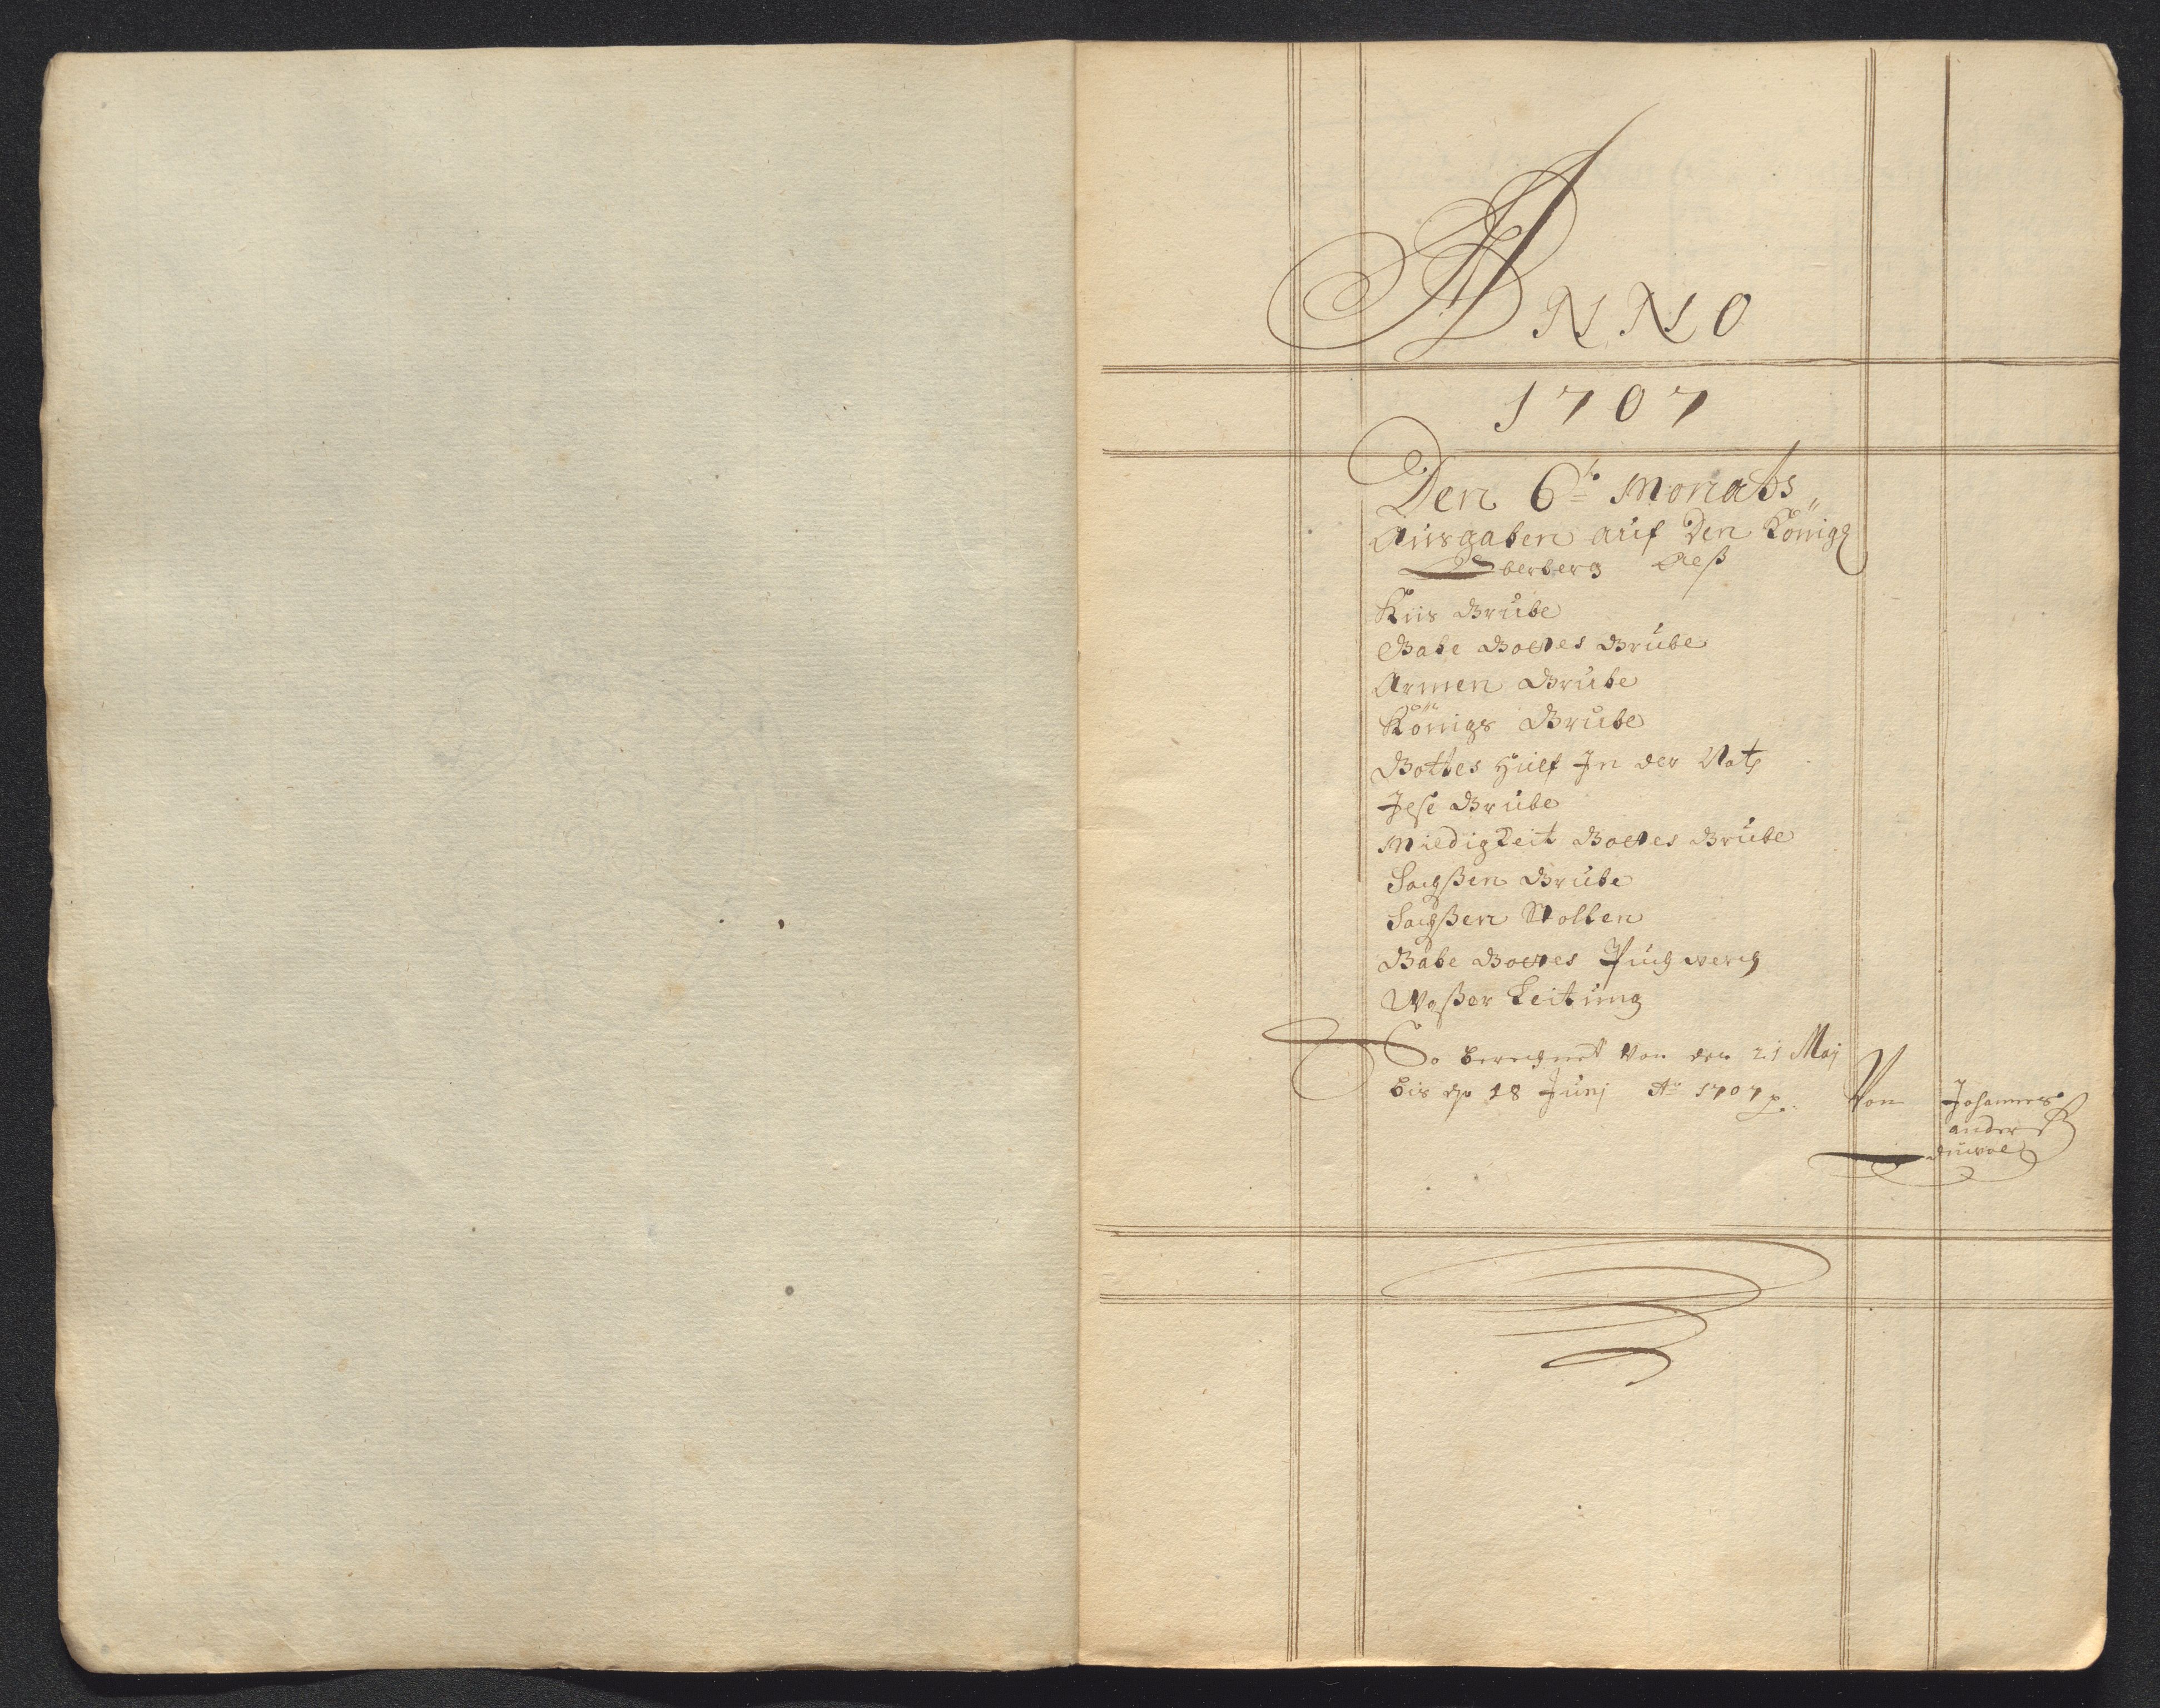 ANNO
1707
Den 6t Monats
Ausgaben auf Den Königg
Grube
Gabe Gottes Grube
Armen Grube
Königs Grube
Gottes Hülf In der Noth
Grube
Mildigkeit Gottes Grube
Sachßen Grube
Sachßen Stollen
Gabe Gottes Puchwerch
Waßer Leitung
So berechnet Von den 21 Maj
bis d 18 Junj Ao 1707
Von Johannes